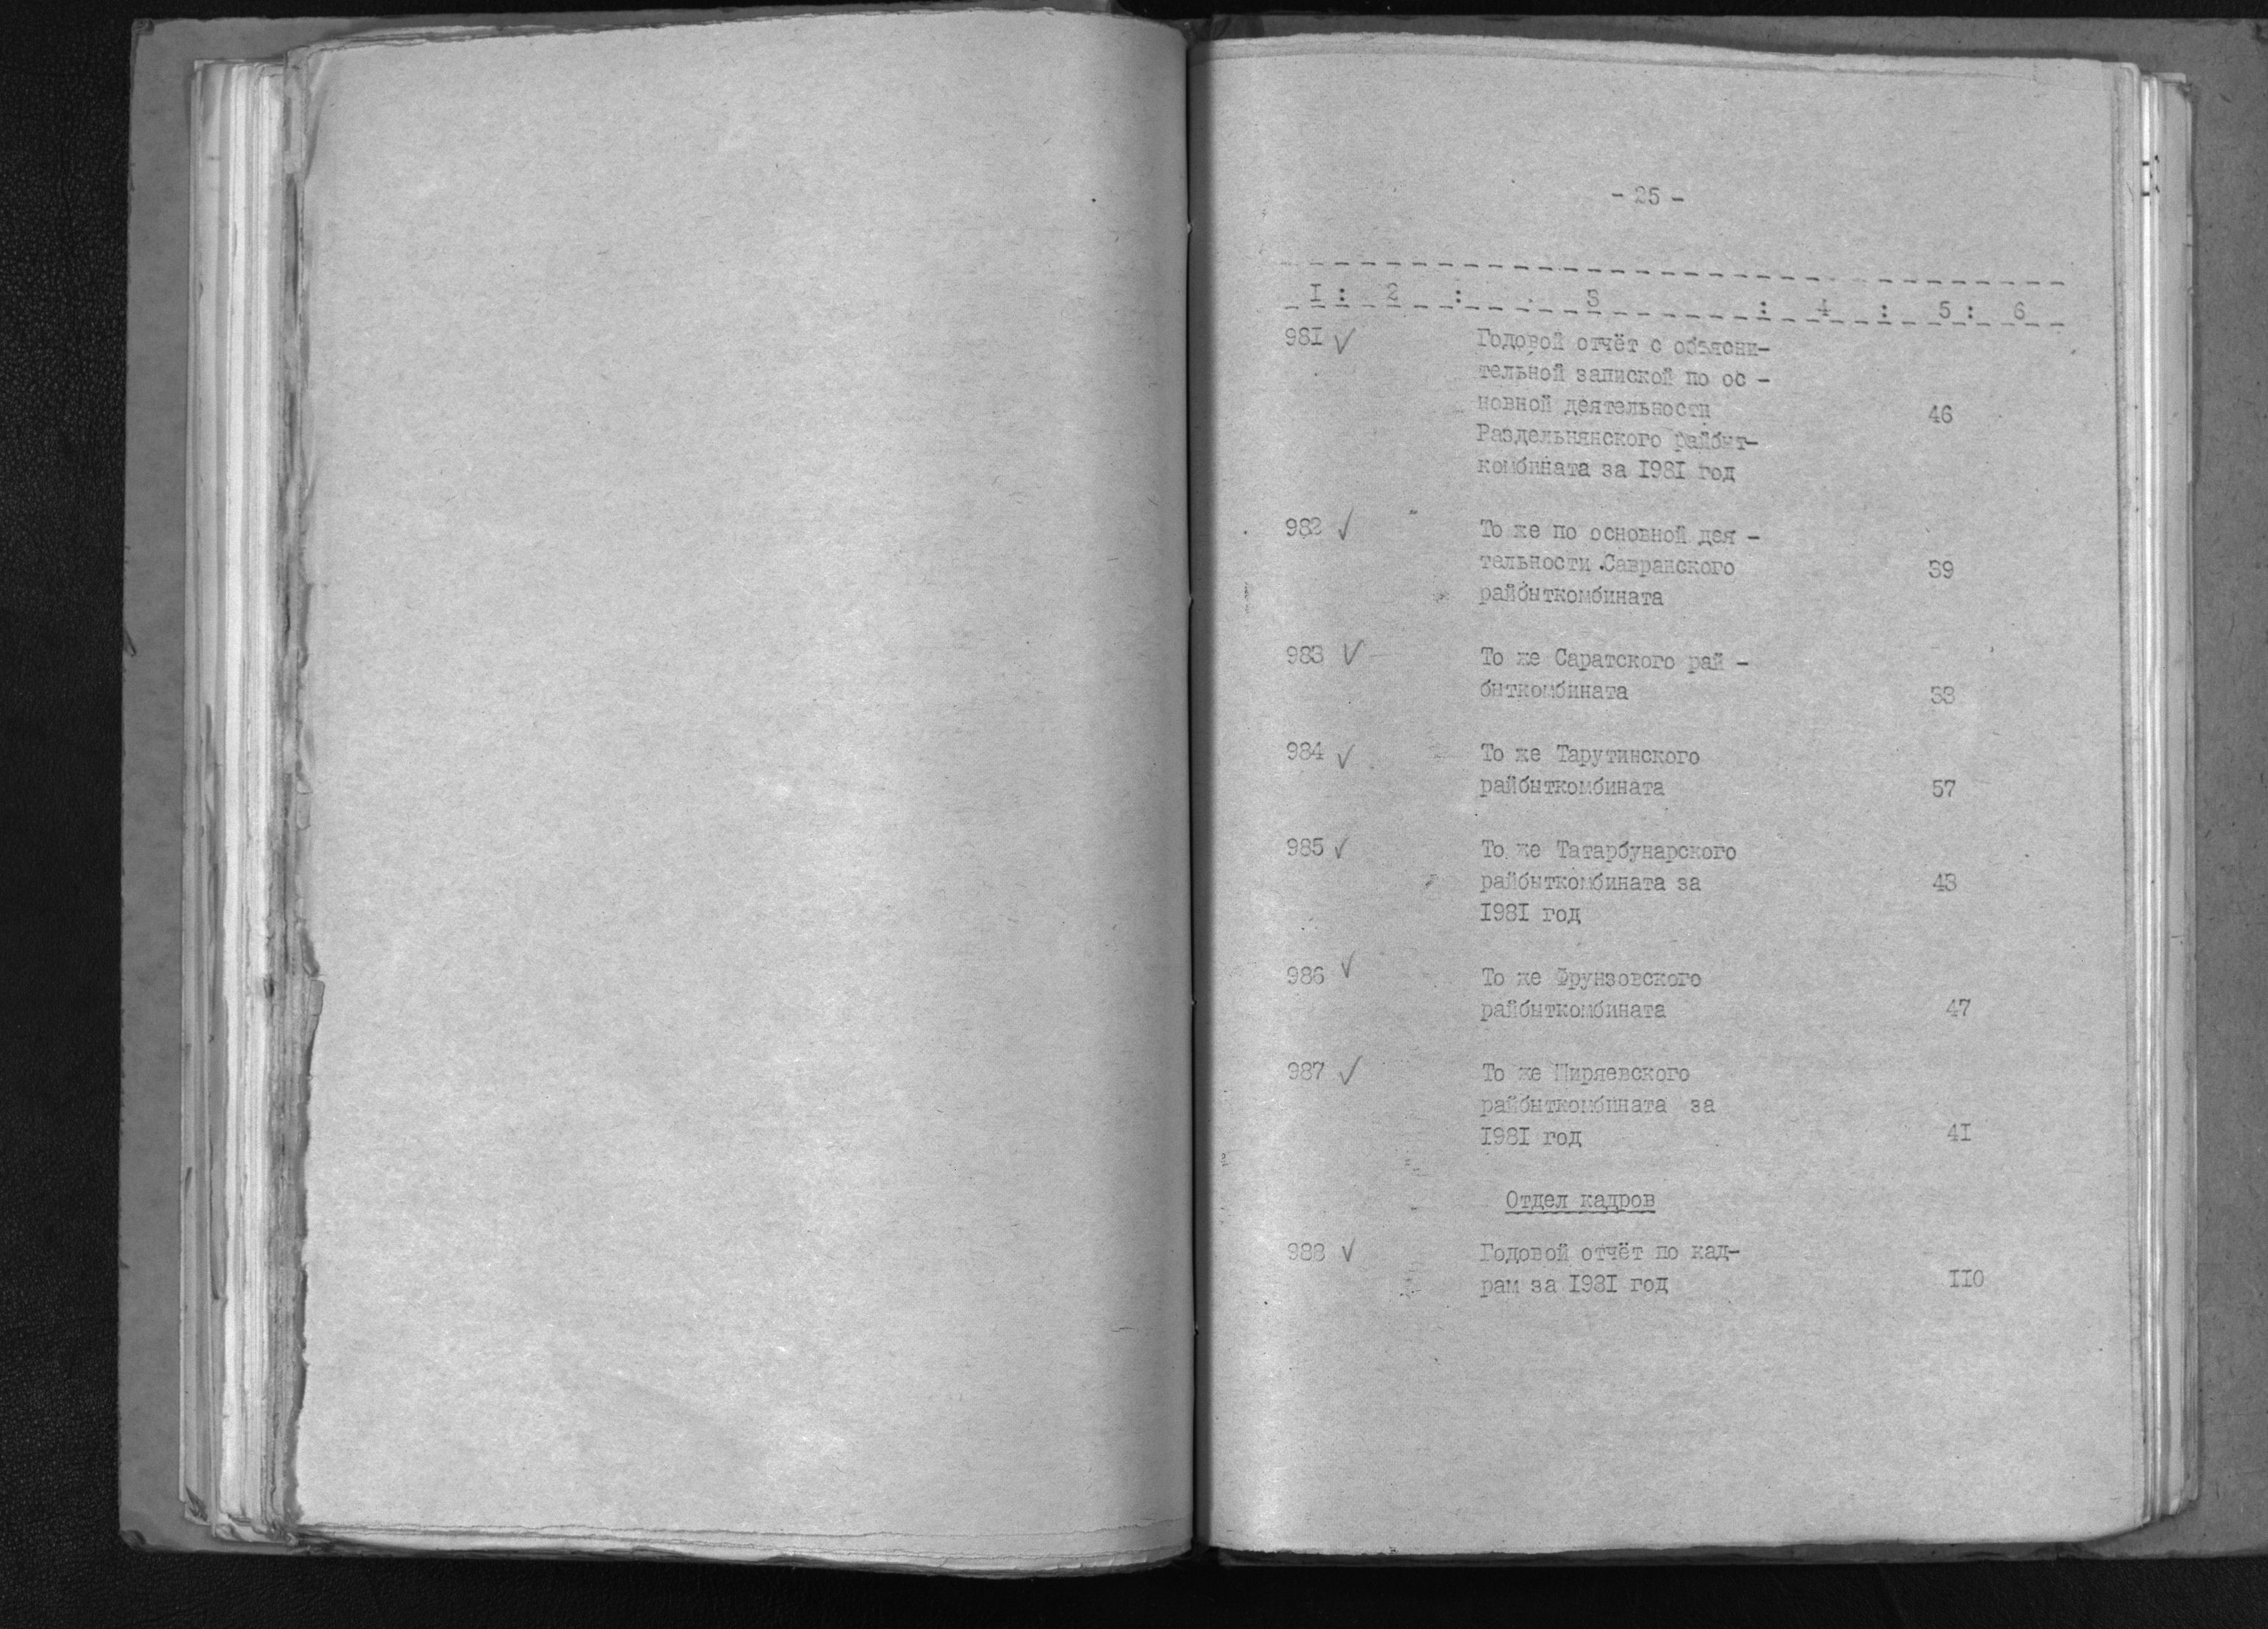 - 25 -
I : 2 : 3 : 4 : 5 : 6
981 ✓ Годовой отчёт с объясни-
тельной запиской по ос -
новной деятельности 46
Раздельнянского райбыт-
комбината за 1981 год
982 ✓ То же по основной дея -
тельности Савранского 39
райбыткомбината
983 ✓ То же Саратского рай -
быткомбината
984 ✓ То же Тарутинского
райбыткомбината 57
985 ✓ То же Татарбунарского
райбыткомбината за 43
1981 год
986 ✓ То же Фрунзовского
райбыткомбината 47
987 ✓ То же Ширяевского
райбыткомбината за
1981 год 41
Отдел кадров
988 ✓ Годовой отчёт по кад-
рам за 1981 год 110